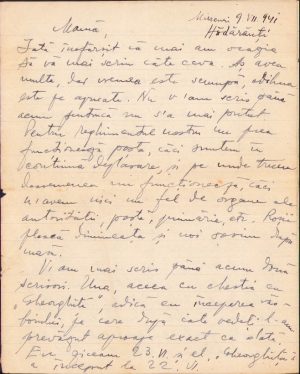 Miercuri 9 VII 941
Hădărăuți
Mamă,
Iată însfârșit că mai am ocazia
Să vă mai scriu câte ceva. Aș avea
multe, dar vremea este scumpă,
este pe apucate. Nu v'am scris până
acum fiindcă nu s'a mai putut.
Pentru regimentul nostru nu prea
funcționează poșta, căci suntem în
continuă deplasare, și pe unde trecem
deasemenea nu funcționează, căci
n'avem nici un fel de organe ale
autorității poștă, primărie, etc. Rușii
pleacă dimineața și noi sosim după
masă.
V'am mai scris până acum două
scrisori. Una, aceea cu chestia cu
"Gheorghiță", adică cu începerea răz-
boiului, pe care după câte vedeți l-am
prevăzut aproape exact ca dată.
Eu ziceam 23 VI și el, "Gheorghiță"
a început la 22 VI.